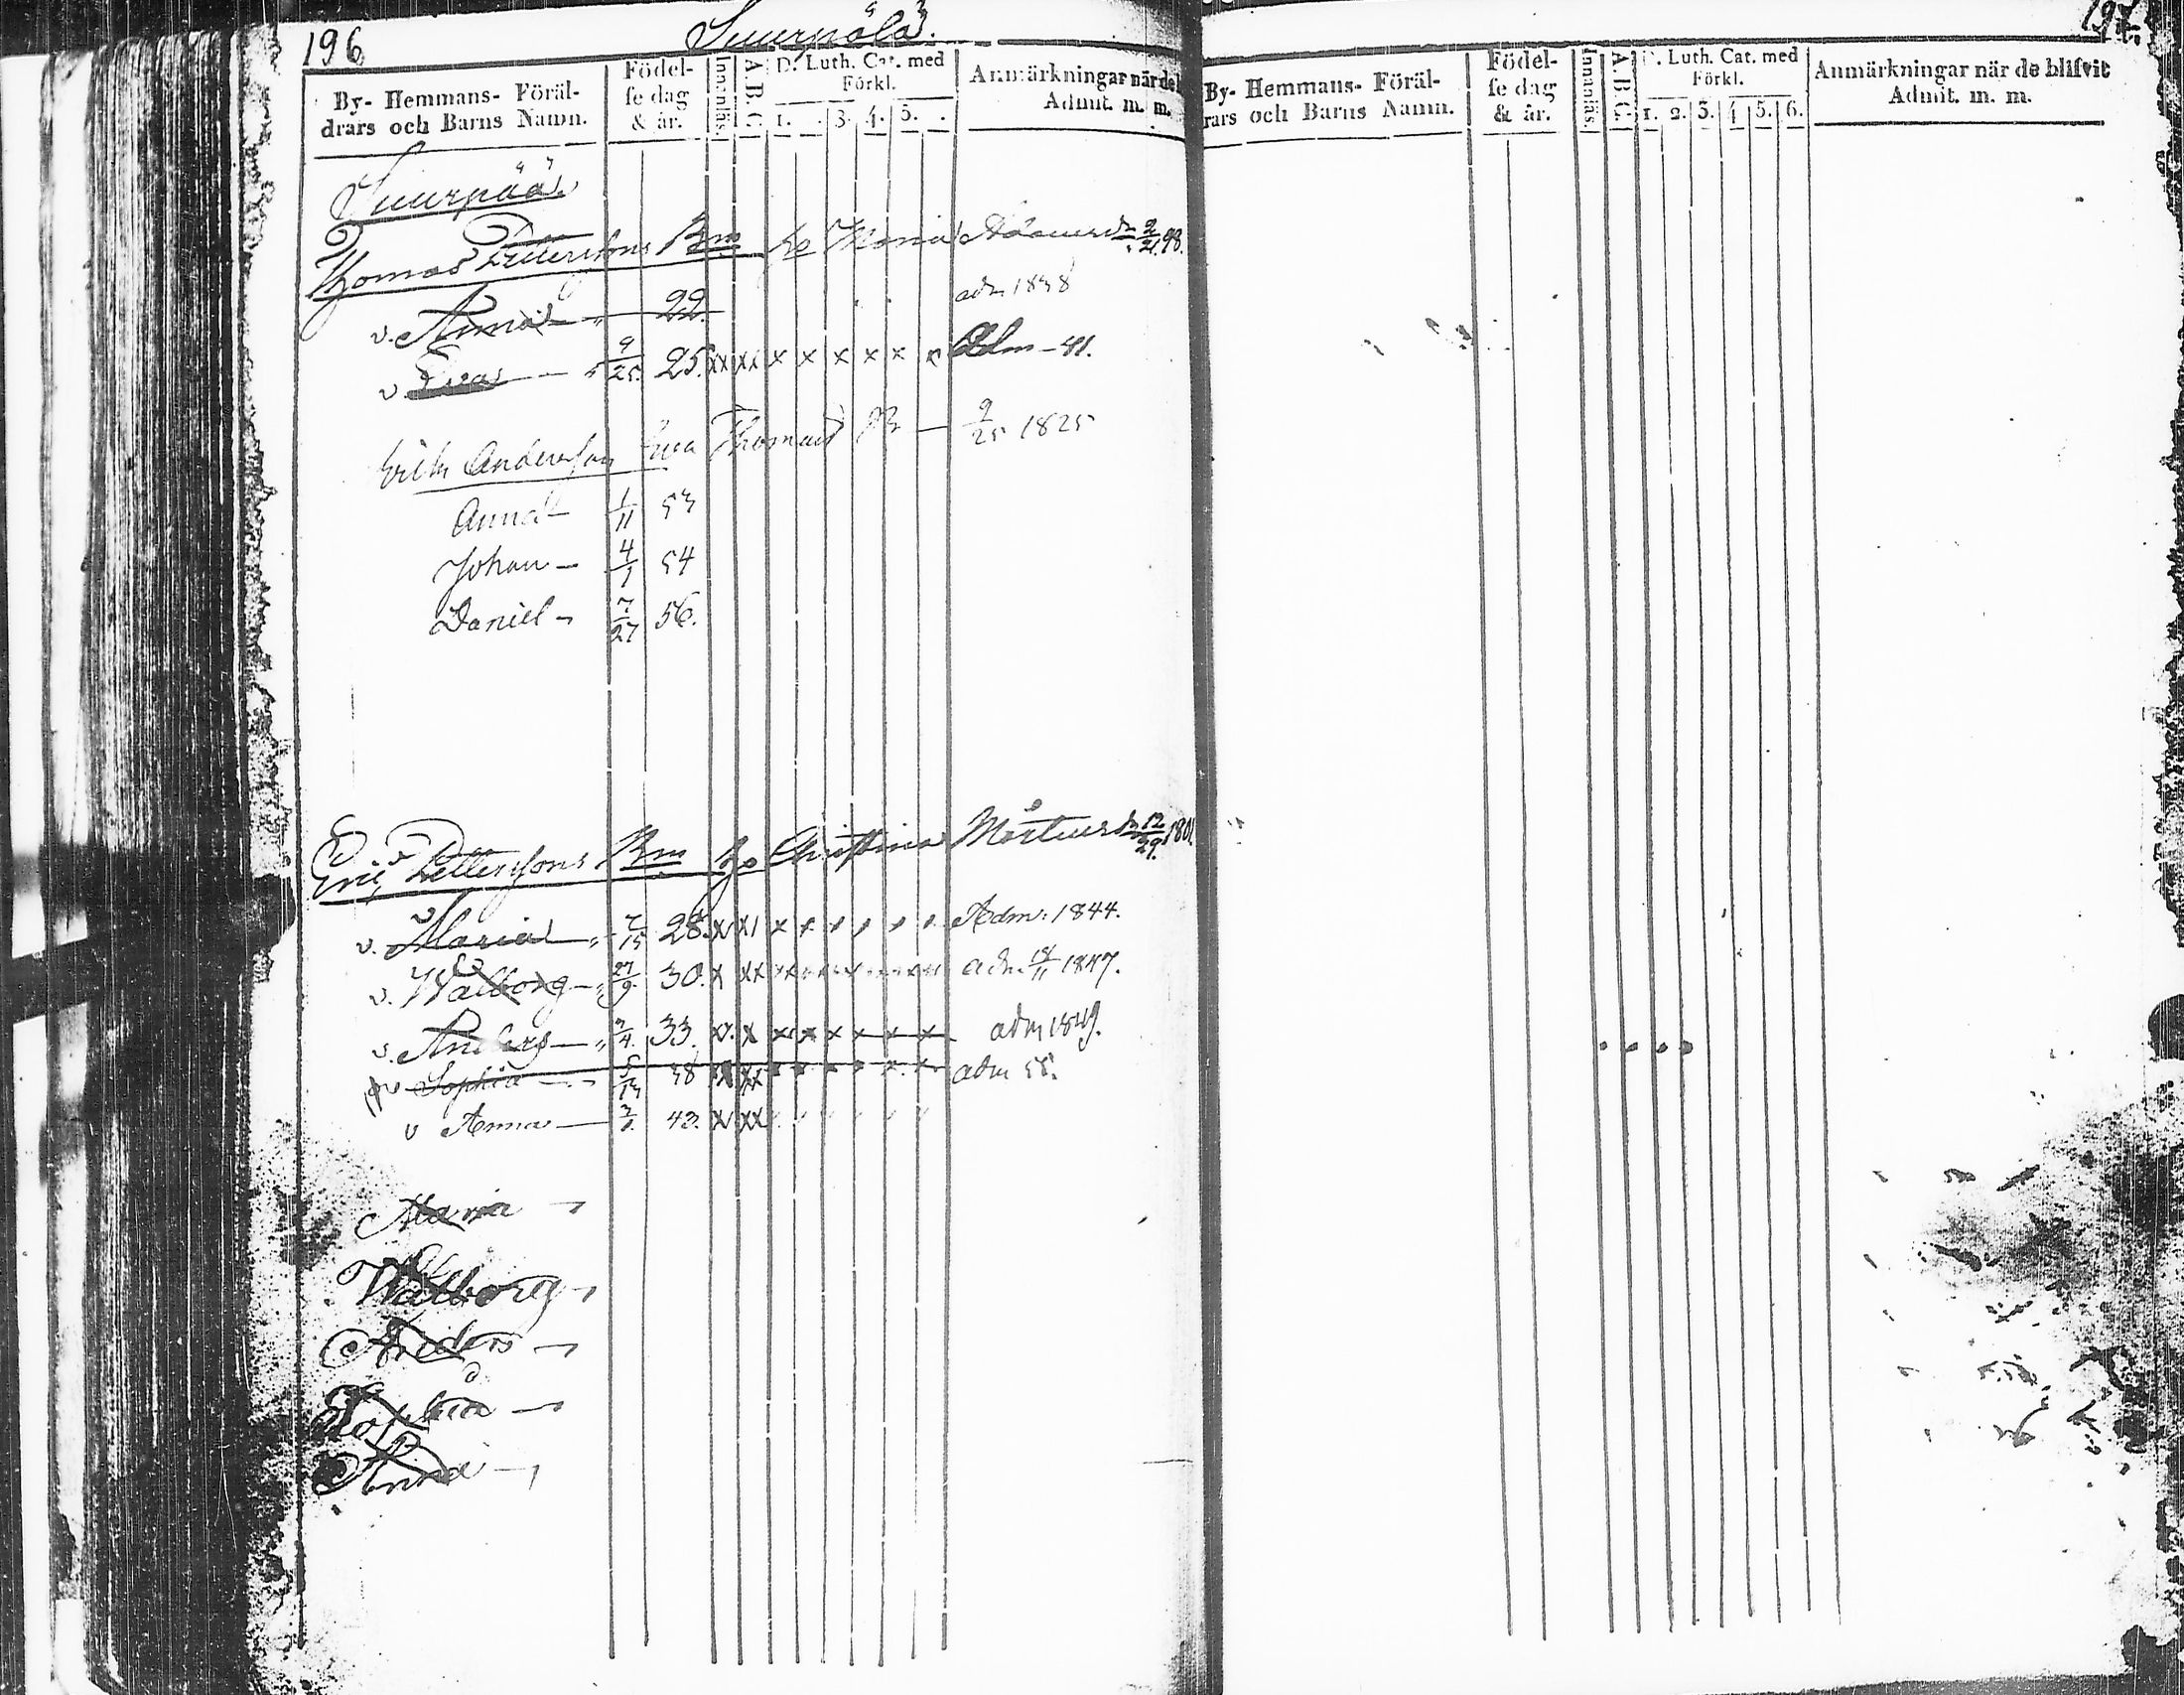 196
Suurpälä.
By- Hemmans- Föräl-
drars och Barns Namn.
Födel-
se dag
& år.
Innanläs.
A. B. C.
D. Luth. Cat. med
Förkl.
1. 3. 4. 5.
Anmärkningar när de
Admit. m. m.
Suurpää
Thomas Pettersons Brn
Maria Adamsdr 2/21 98.
v. Anna 22. adm 1838
v Eva 9/25. 25. xx xx x x x x x Adm - 41.
Erik Andersson Eva Thomasd 9/25 1825
Anna 1/11 53
Johan 4/1 54
Daniel 7/27 56.
Eric Pettersons Brn Christina Mårtensdr 12/29. 1801
v. Maria 7/15 28. Adm. 1844.
v. Walborg 27/9. 30. adm. 1847.
s. Anders 33. adm 1849.
v Sophia 5/13 38 adm 58.
v Anna 43. x xx
Maria
Walborg
Anders
Sophia
Anna
197.
By- Hemmans- Föräl-
rars och Barns Namn.
Födel-
se dag
& år.
Innanläs.
A. B. C.
D. Luth. Cat. med
Förkl.
1. 2. 3. 4 5. 6.
Anmärkningar när de blifvit
Admit. m. m.